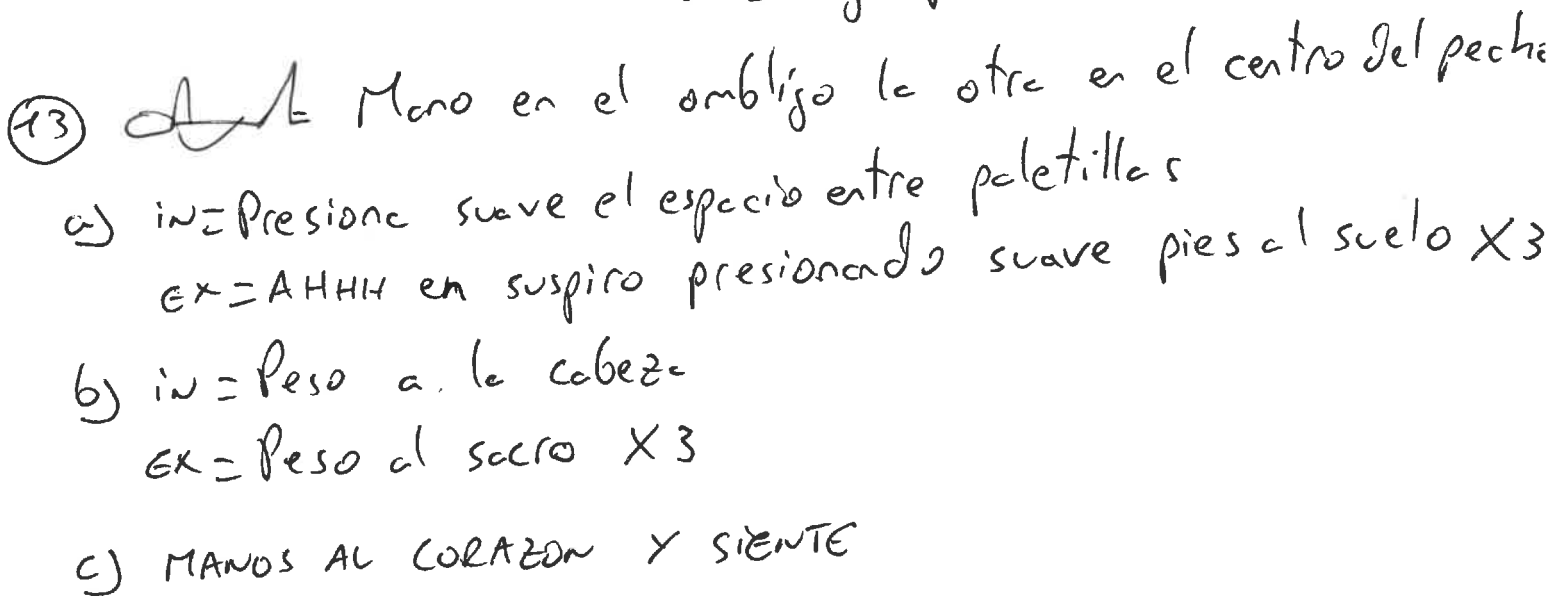 13 Mano en el ombligo la otra en el centro del pecho
a) iN = Presiona suave el espacio entre paletillas
EX = AHHH en suspiro presionando suave pies al suelo X3
b) iN = Peso a la cabeza
EX = Peso al sacro X3
c) MANOS AL CORAZON Y SiENTE